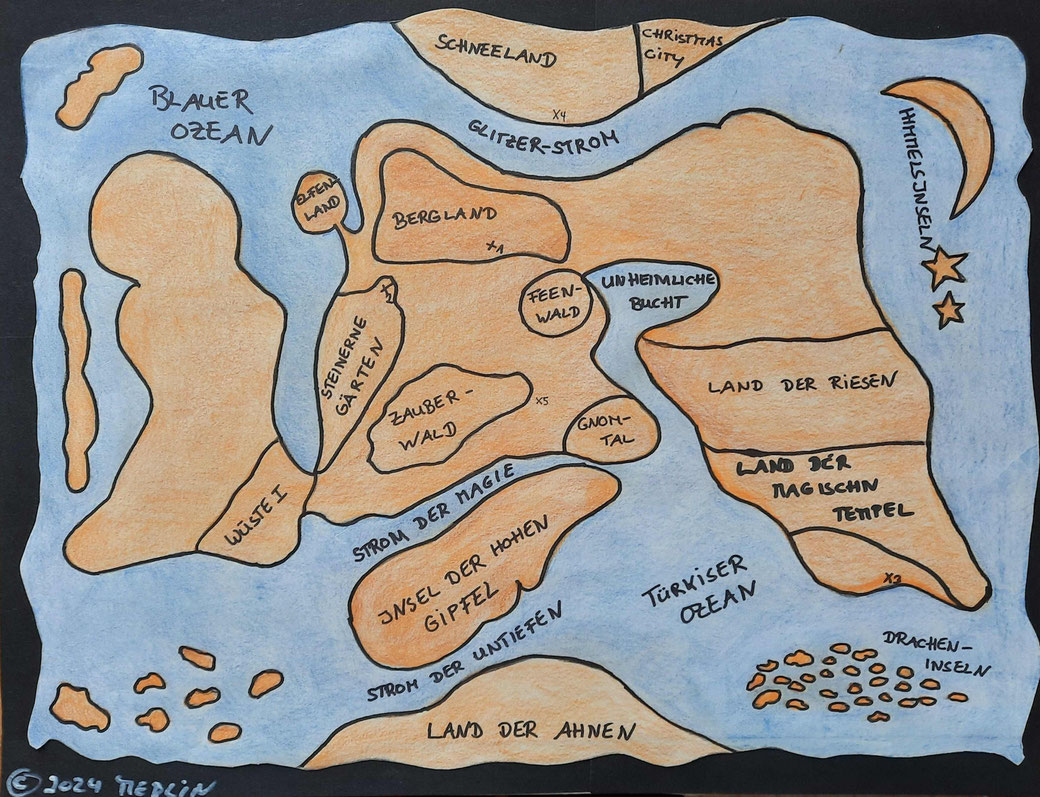 SCHNEELAND
CHRISTMAS
CITY
X4
BLAUER
OZEAN
GLITZER-STROM
HIMMELSINSELN
ELFEN-
LAND
BERGLAND
X1
FEEN-
WALD
UNHEIMLICHE
BUCHT
STEINERNE
GÄRTEN
LAND DER RIESEN
ZAUBER-
WALD
X5
GNOM-
TAL
LAND DER
MAGISCHN
TEMPEL
WÜSTE I
STROM DER MAGIE
INSEL DER HOHEN
GIPFEL
TÜRKISER
OZEAN
X3
STROM DER UNTIEFEN
DRACHEN-
INSELN
LAND DER AHNEN
© 2024 MERLIN